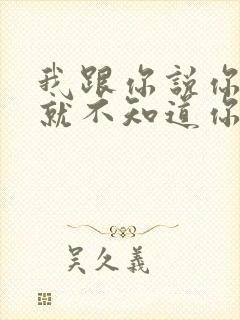 我跟你說你
就不知道你
吴久義